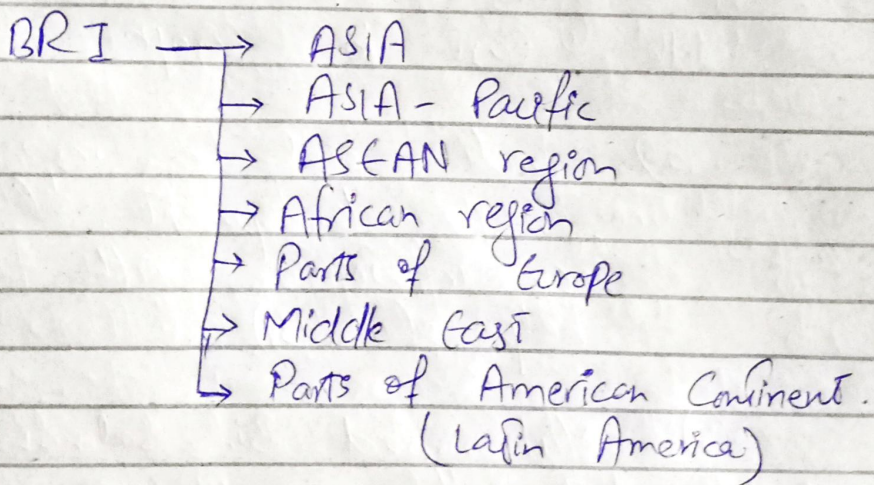 BRI → ASIA
→ ASIA - Pacific
→ ASEAN region
→ African region
→ Parts of Europe
→ Middle East
→ Parts of American Continent.
(Latin America)